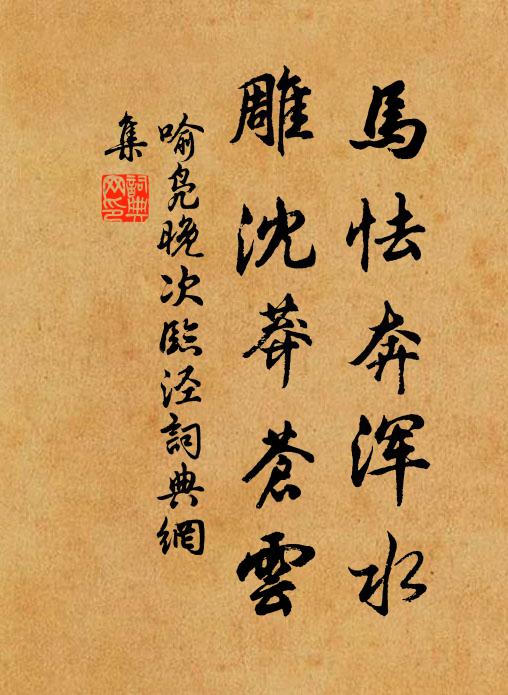 馬怯奔浑水
雕沈莽蒼雲
喻凫晚次臨泾詞典網
集
詞典网印